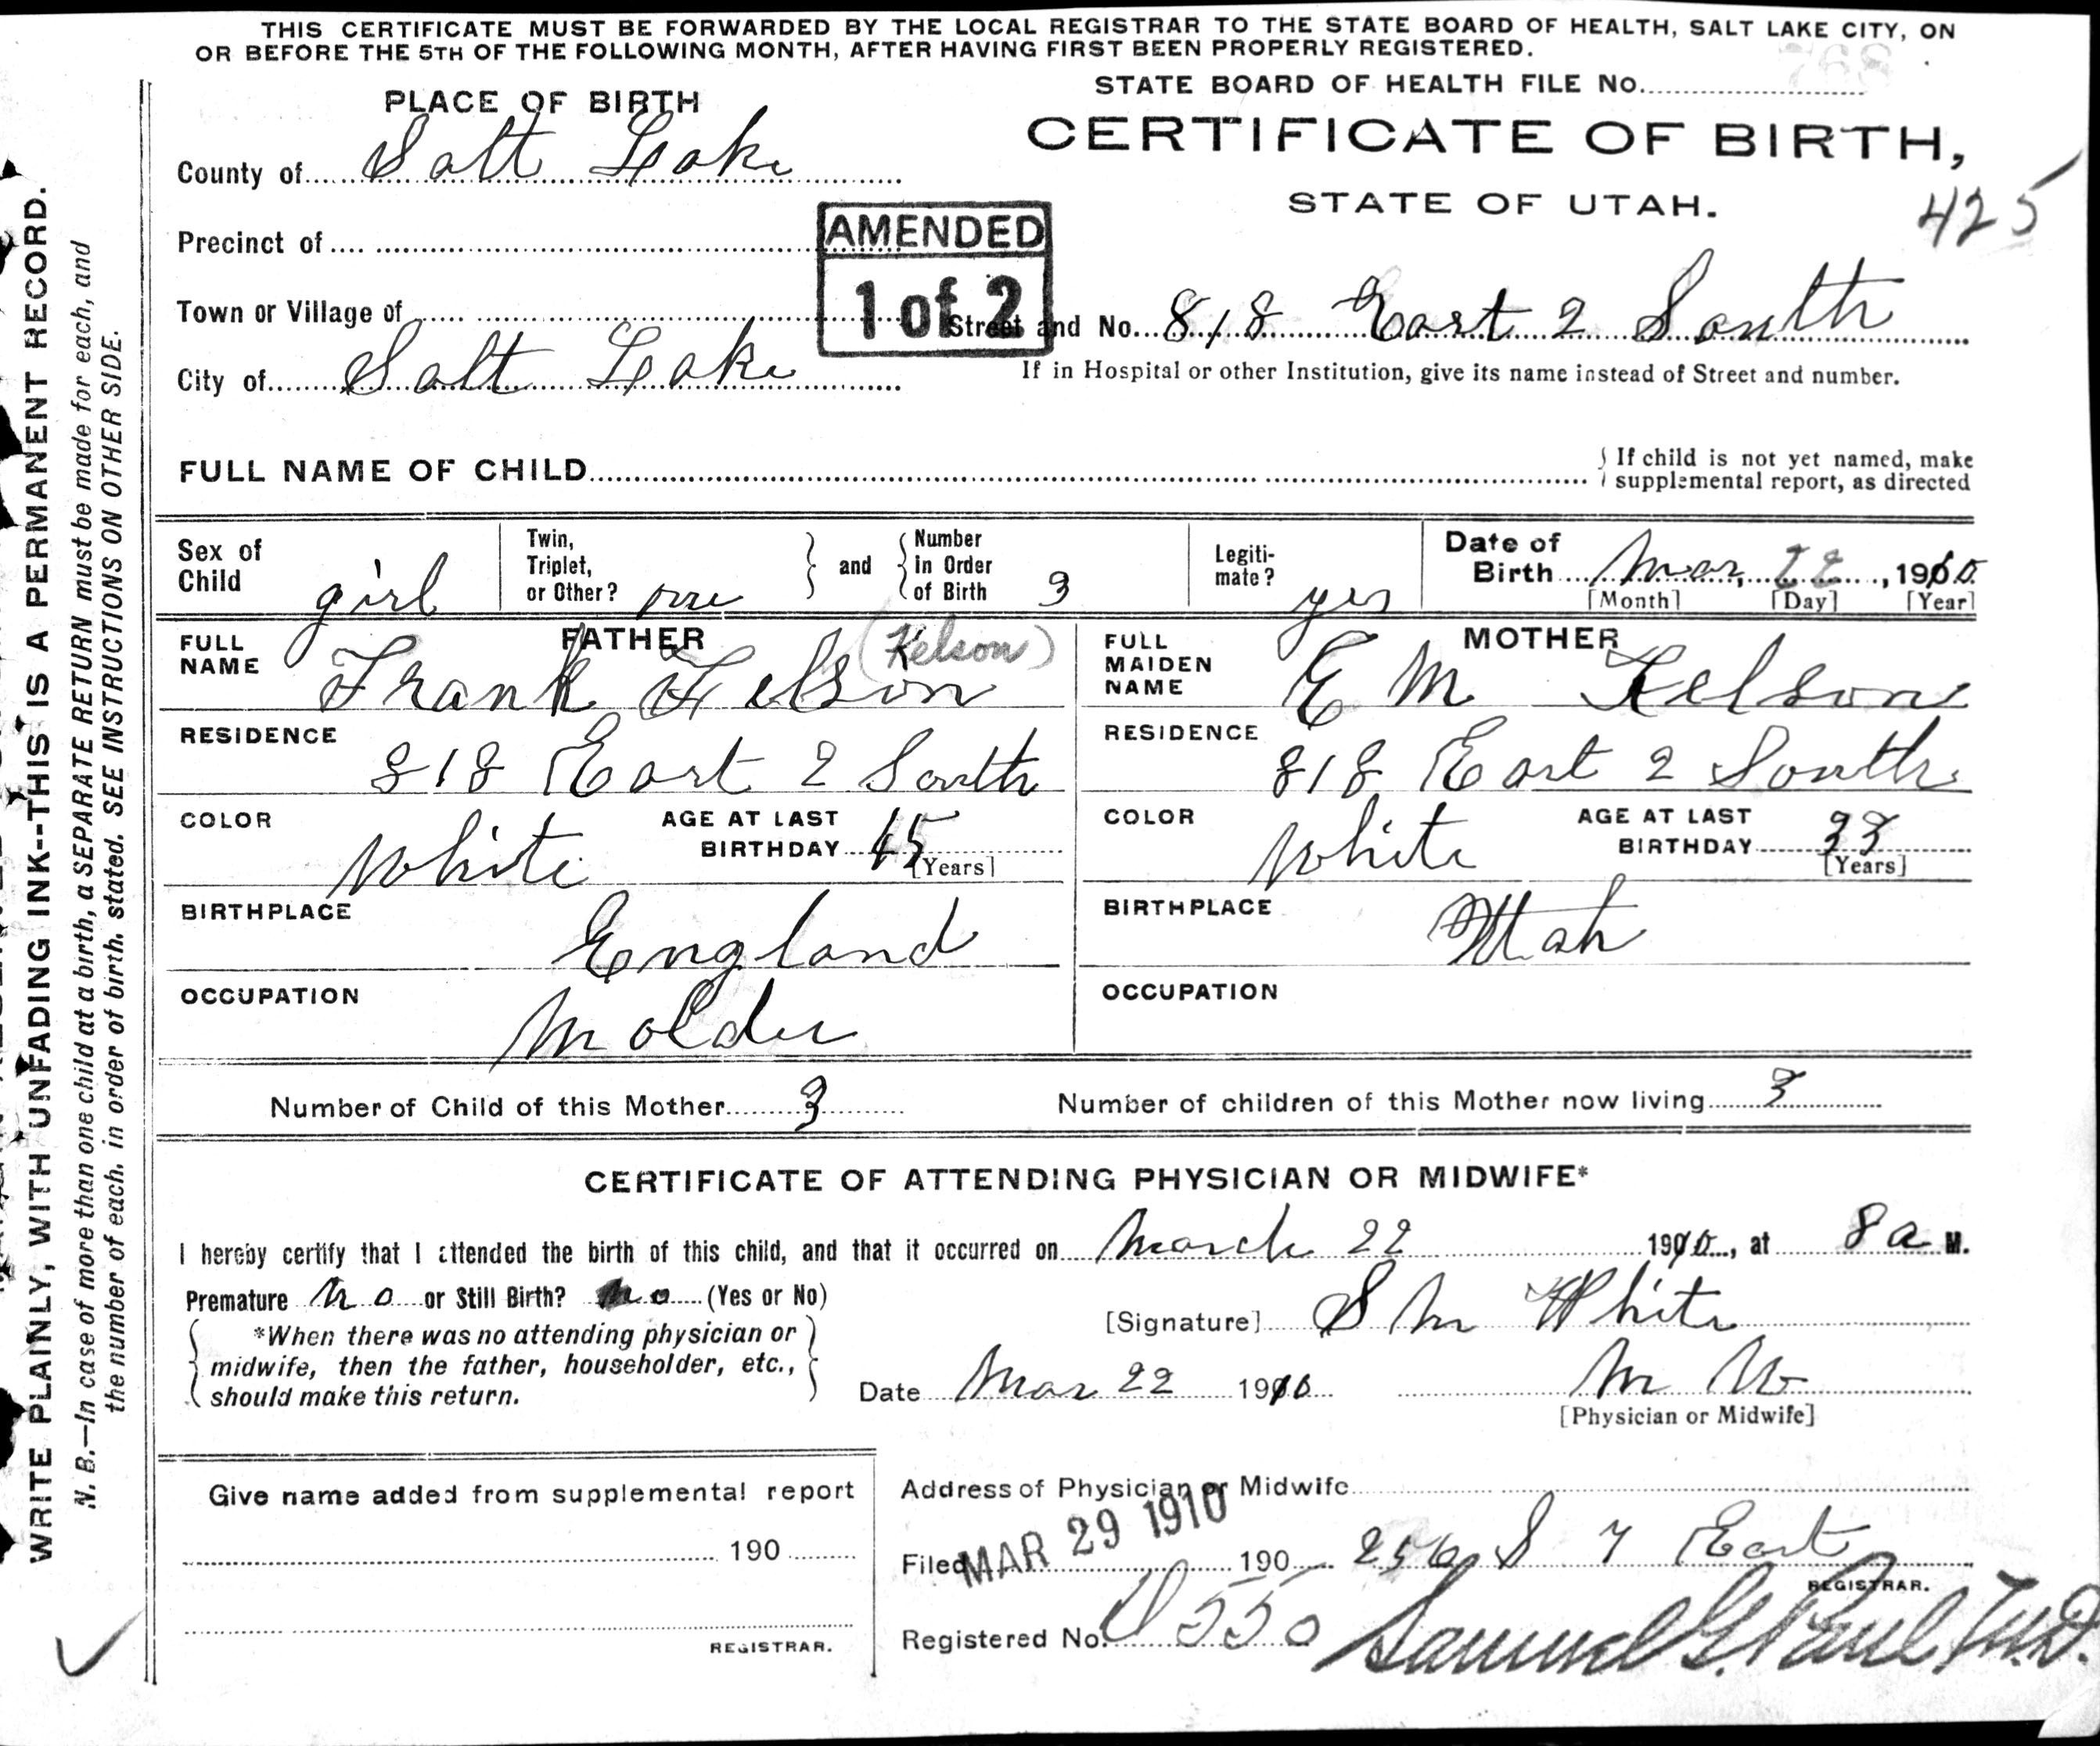 THIS CERTIFICATE MUST BE FORWARDED BY THE LOCAL REGISTRAR TO THE STATE BOARD OF HEALTH, SALT LAKE CITY, ON
OR BEFORE THE 5TH OF THE FOLLOWING MONTH, AFTER HAVING FIRST BEEN PROPERLY REGISTERED.
768
STATE BOARD OF HEALTH FILE No.
PLACE OF BIRTH
CERTIFICATE OF BIRTH,
County of Salt Lake
STATE OF UTAH.
425
AMENDED
1 of 2
Precinct of
Town or Village of
Street and No. 818 East 2 South
City of Salt Lake
If in Hospital or other Institution, give its name instead of Street and number.
FULL NAME OF CHILD
If child is not yet named, make
supplemental report, as directed
Sex of Child girl
Twin, Triplet, or Other? one
and
Number in Order of Birth 3
Legiti-mate? yes
Date of Birth Mar, 22, 1910
[Month] [Day] [Year]
FATHER
FULL NAME Frank Felson (Kelson)
RESIDENCE 818 East 2 South
COLOR White
AGE AT LAST BIRTHDAY 45
[Years]
BIRTHPLACE England
OCCUPATION Molder
MOTHER
FULL MAIDEN NAME E M Kelson
RESIDENCE 818 East 2 South
COLOR White
AGE AT LAST BIRTHDAY 33
[Years]
BIRTHPLACE Utah
OCCUPATION
Number of Child of this Mother 3
Number of children of this Mother now living 3
CERTIFICATE OF ATTENDING PHYSICIAN OR MIDWIFE*
I hereby certify that I attended the birth of this child, and that it occurred on March 22 1910, at 8 a M.
Premature no or Still Birth? no (Yes or No)
[Signature] S M White
*When there was no attending physician or
midwife, then the father, householder, etc.,
should make this return.
Date Mar 22 1910
M W
[Physician or Midwife]
Give name added from supplemental report
190
REGISTRAR.
Address of Physician or Midwife
Filed MAR 29 1910 190 256 S 7 East
REGISTRAR.
Registered No. D 550 Samuel G. Paul M.D.
WRITE PLAINLY, WITH UNFADING INK--THIS IS A PERMANENT RECORD.
N. B.—In case of more than one child at a birth, a SEPARATE RETURN must be made for each, and
the number of each, in order of birth, stated. SEE INSTRUCTIONS ON OTHER SIDE.